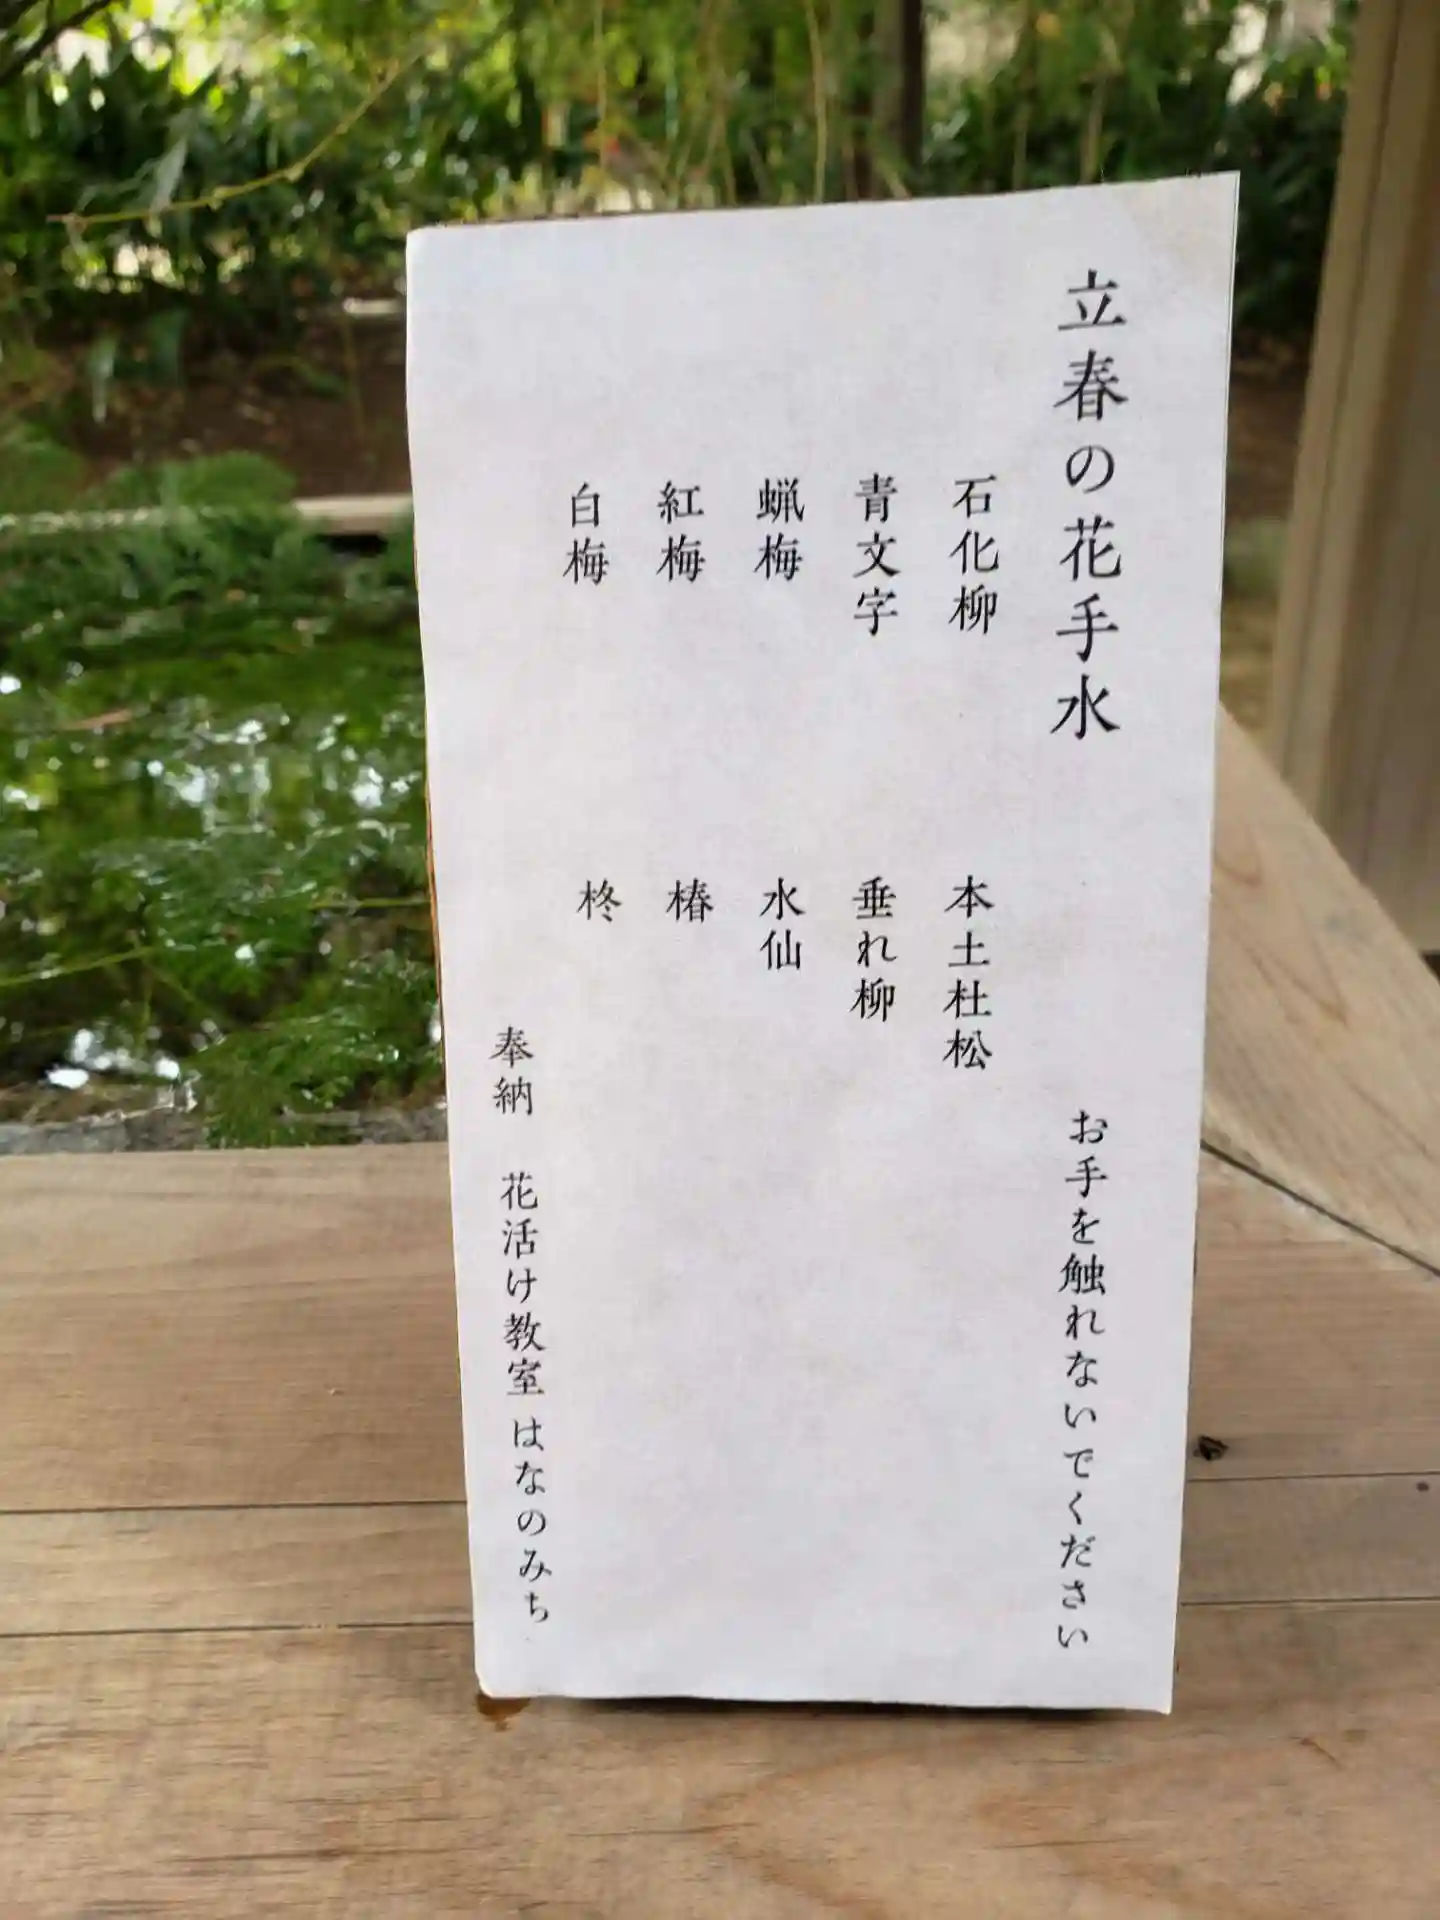 立春の花手水
お手を触れないでください
石化柳
青文字
蝋梅
紅梅
白梅
本土杜松
垂れ柳
水仙
椿
柊
奉納 花活け教室 はなのみち